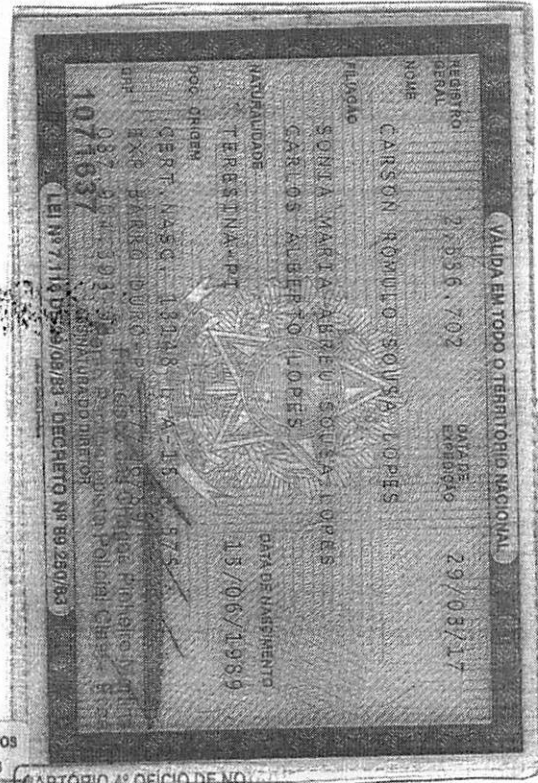 VÁLIDA EM TODO O TERRITÓRIO NACIONAL
REGISTRO GERAL 2.656.702 DATA DE EXPEDIÇÃO 29/08/17
NOME
CARSON RÔMULO SOUSA LOPES
FILIAÇÃO
SONIA MARIA ABREU SOUSA LOPES
CARLOS ALBERTO LOPES
NATURALIDADE DATA DE NASCIMENTO
TERESINA-PI 15/06/1989
DOC ORIGEM
CERT. NASC. 13148 L A-15
EXP BARRO DURO-P
CPF
1071637
ASSINATURA DO DIRETOR
LEI Nº 7.116 DE 29/08/83 - DECRETO Nº 89.250/83
OS
CARTÓRIO 4º OFÍCIO DE NO